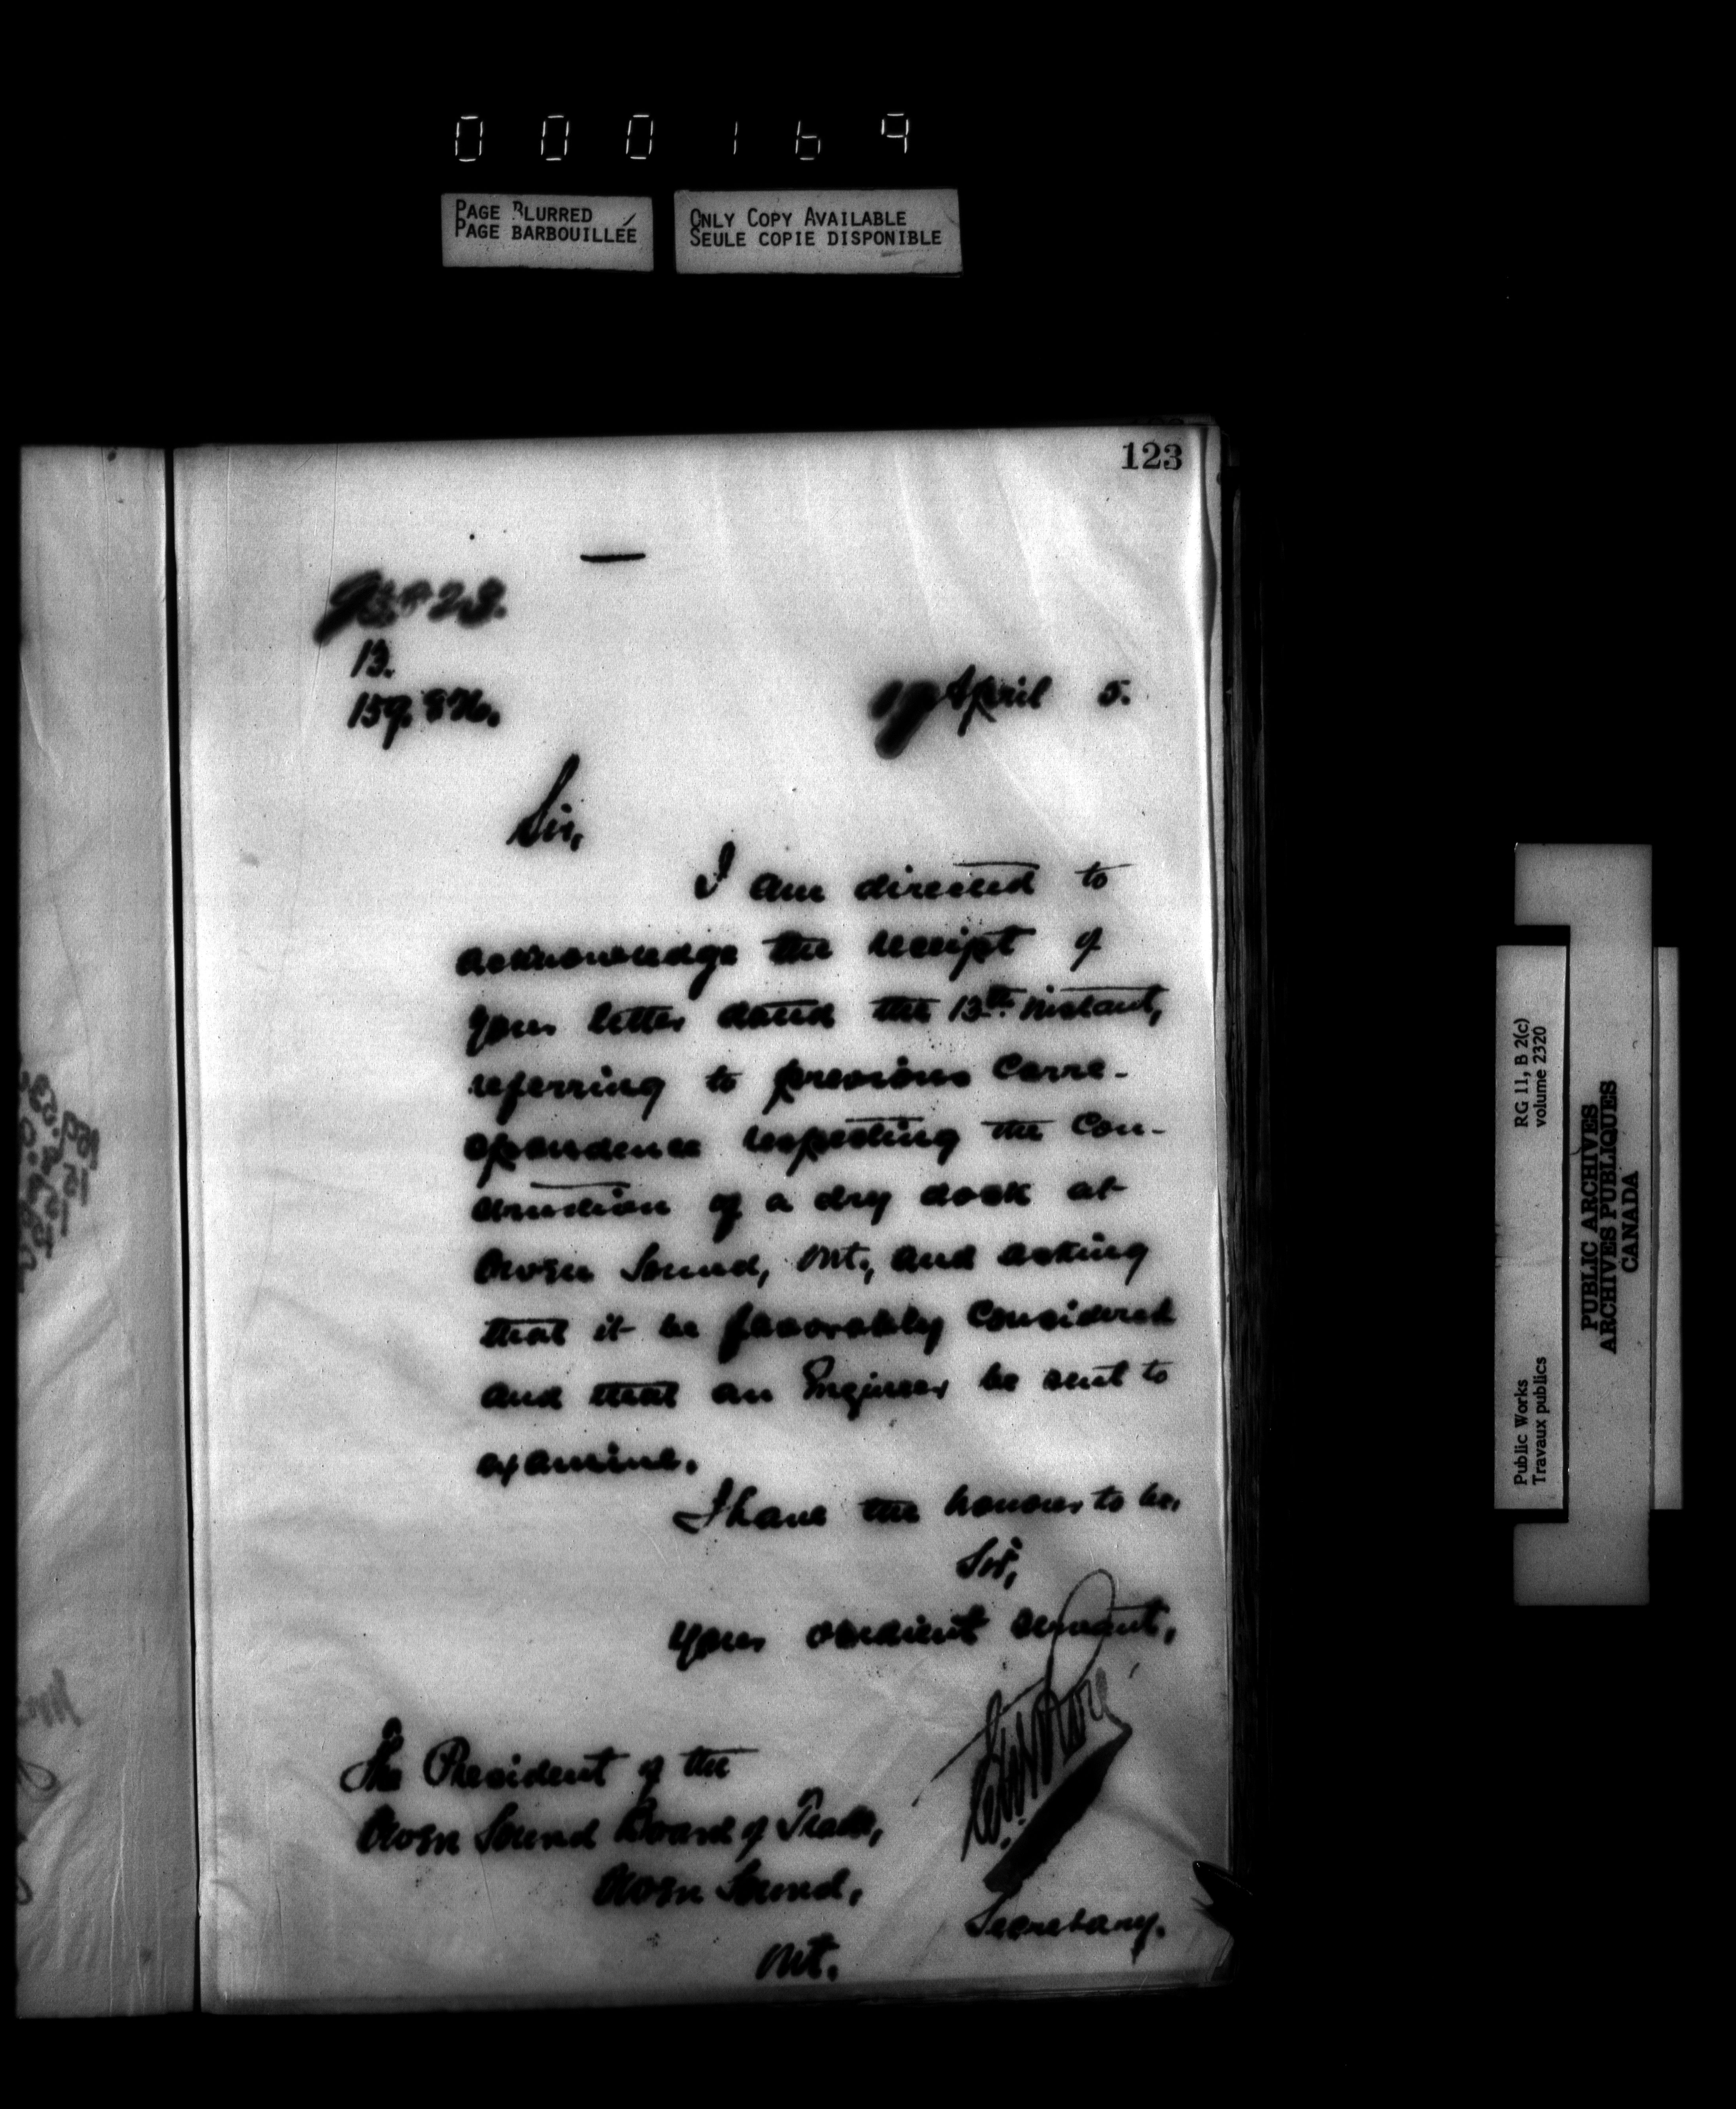 000169
PAGE BLURRED
PAGE BARBOUILLÉE
ONLY COPY AVAILABLE
SEULE COPIE DISPONIBLE
123
13.
April 5.
Sir,
I am directed to
acknowledge the receipt of
your letter dated the 13th instant,
referring to previous Corre-
spondence respecting the Con-
struction of a dry dock at
Owen Sound, Ont., and asking
that it be favorably Considered
and that an Engineer be sent to
examine.
I have the honour to be,
Sir,
Your obedient servant,
The President of the
Owen Sound Board of Trade,
Owen Sound,
Ont.
Secretary.
Public Works
Travaux publics
RG 11, B 2(c)
volume 2320
PUBLIC ARCHIVES
ARCHIVES PUBLIQUES
CANADA